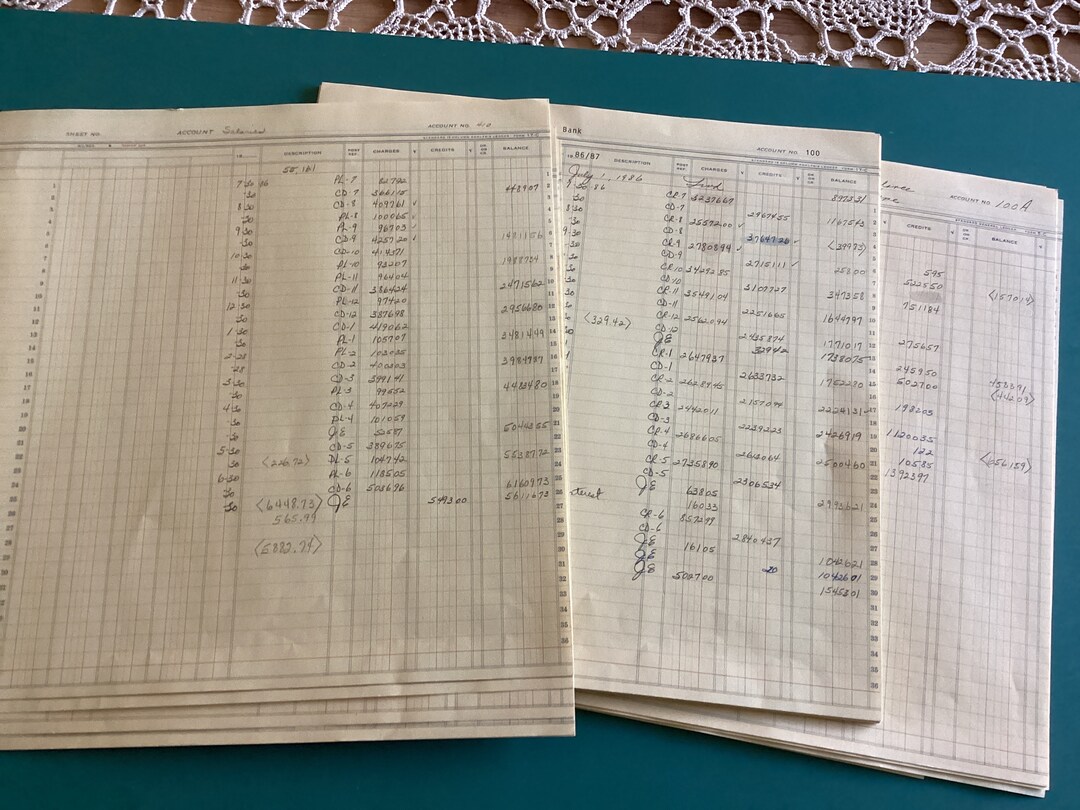 SHEET NO. ACCOUNT ACCOUNT NO. 410
DESCRIPTION POST REF. CHARGES CREDITS BALANCE
55,161
7 30 86 PL-7 82792
30 CD-7 366115 448907
8 30 CD-8 409761
30 PL-8 100065
9 30 PL-9 96703
30 CD-9 425720 1481156
10 30 CD-10 414371
30 PL-10 93207 1988734
30 PL-11 96404
11 30 CD-11 386424 2471562
30 PL-12 97420
12 30 CD-12 387698 2956680
30 CD-1 419062
1 30 PL-1 105707 3481449
30 PL-2 102035
2-28 CD-2 400303
28 CD-3 399141
3 30 PL-3 99552 4483480
30 CD-4 407229
4 30 PL-4 101059
30 JE
30 CD-5 389675
5-30 PL-5 104742 5538772
30 <226.72> PL-6 118505
6-30 CD-6 503696 6160973
30 <6448.73> JE 549300 5611673
30 565.99
<5882.74>
Bank
ACCOUNT NO. 100
1986/87 DESCRIPTION POST REF. CHARGES CREDITS BALANCE
July 1, 1986 Fwd 897331
30-86 CR-7 3237667
30 CD-7 2967455 1167543
8 30 CR-8 2557200
30 CD-8 3764720 <39973>
9-30 CR-9 2780894
30 CD-9 2715111 25800
30 CR-10 3429285
30 CD-10 3107727 347358
30 CR-11 3549104
30 CD-11 2251665 1644797
30 CR-12 2562094
30 CD-12 2435874 1771017
<329.42> JE 32942 1738075
CR-1 2647937
CD-1 2633732 1752280
CR-2 2628945
CD-2 2157094 2224131
CR-3 2442011
CD-3 2239223 2426919
CR-4 2686605
CD-4 2613064 2500460
CR-5 2735890
CD-5 2306534
JE 63805
terest 16033
CR-6 857299
CD-6 2840437
JE 16105 1042621
JE 20 1042601
JE 502700 1545301
ACCOUNT NO. 100A
CREDITS BALANCE
595
522550 <157014>
751184
275657
245950
502700 <44209>
198203
1120035
122 <256159>
10585
1392397